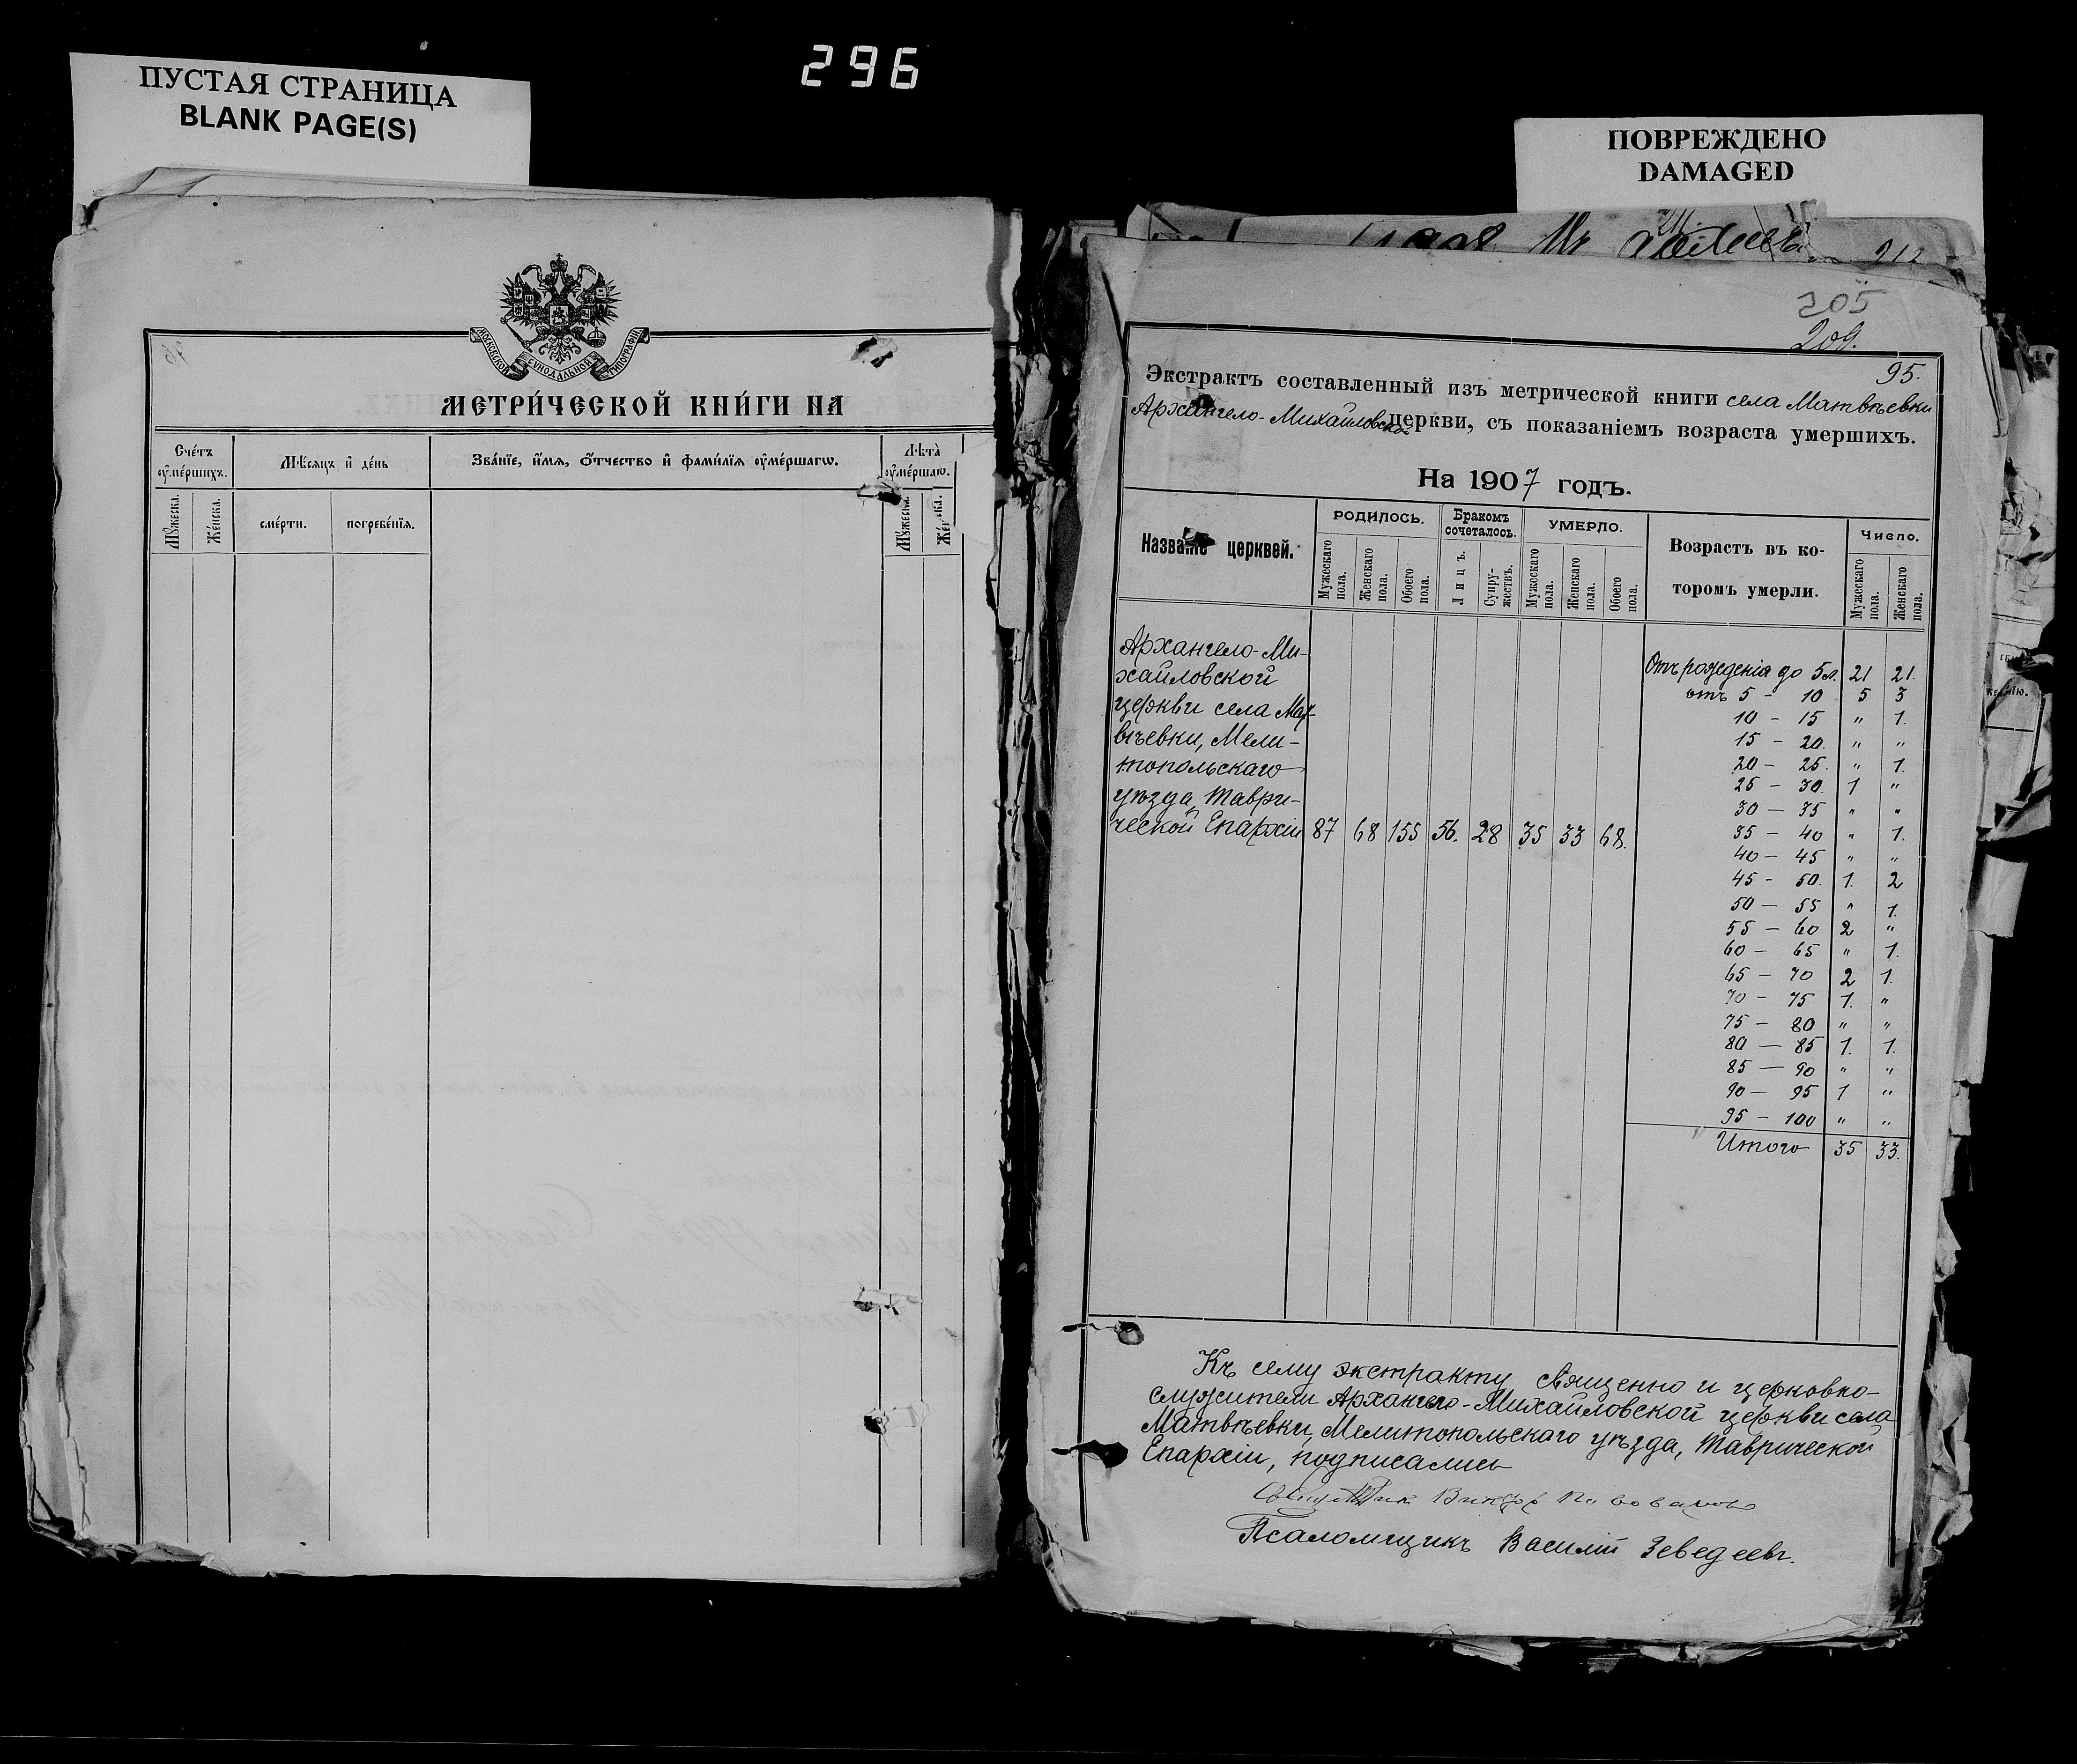 296
ПУСТАЯ СТРАНИЦА
BLANK PAGE(S)
ПОВРЕЖДЕНО
DAMAGED
МОСКОВСКОЙ СѴНОДАЛЬНОЙ ТИПОГРАФІИ
МЕТРИ́ЧЕСКОЙ КНИ́ГИ НА
Сче́тъ оу҆ме́ршихъ.
Мѣ́сяцъ и҆ де́нь
Зва́нїе, и҆́мѧ, ѻ҆́тчество и҆ фами́лїѧ оу҆ме́ршагѡ.
Лѣ́та̀ оу҆ме́ршагѡ.
Мꙋ́жеска.
Же́нска.
сме́рти.
погребе́нїѧ.
Мꙋ́жеска.
205
209.
95.
Экстрактъ составленный изъ метрической книги села Матвѣевки
Архангело-Михайловской церкви, съ показаніемъ возраста умершихъ.
На 1907 годъ.
Названіе церквей.
РОДИЛОСЬ.
Бракомъ сочеталось.
УМЕРЛО.
Возрастъ въ ко-
торомъ умерли.
Число.
Мужескаго пола.
Женскаго пола.
Обоего пола.
Лицъ.
Супру-жествъ.
Мужескаго пола.
Женскаго пола.
Обоего пола.
Мужескаго пола.
Женскаго пола.
Архангело-Ми-
хайловской
церкви села Мат-
вѣевки, Мели-
топольскаго
уѣзда, Таври-
ческой Епархіи 87 68 155 56. 28 35 33 68.
Отъ рожденія до 5 л. 21 21.
отъ 5 - 10 5 3
10 - 15 " 1.
15 - 20. " "
20 - 25. " 1.
25 - 30. 1 "
30 - 35 " "
35 - 40 " 1.
40 - 45 " "
45 - 50. 1. 2
50 - 55 " 1.
55 - 60 2 "
60 - 65 " 1.
65 - 70 2 1.
70 - 75 1. "
75 - 80 " "
80 - 85 1. 1.
85 - 90 " "
90 - 95 1 "
95 - 100 " "
Итого 35 33.
Къ сему экстракту священно и церковно-
служители Архангело-Михайловской церкви села
Матвѣевки, Мелитопольскаго уѣзда, Таврической
Епархіи, подписались
Викторъ
Псаломщикъ Василій Зеведеевъ.